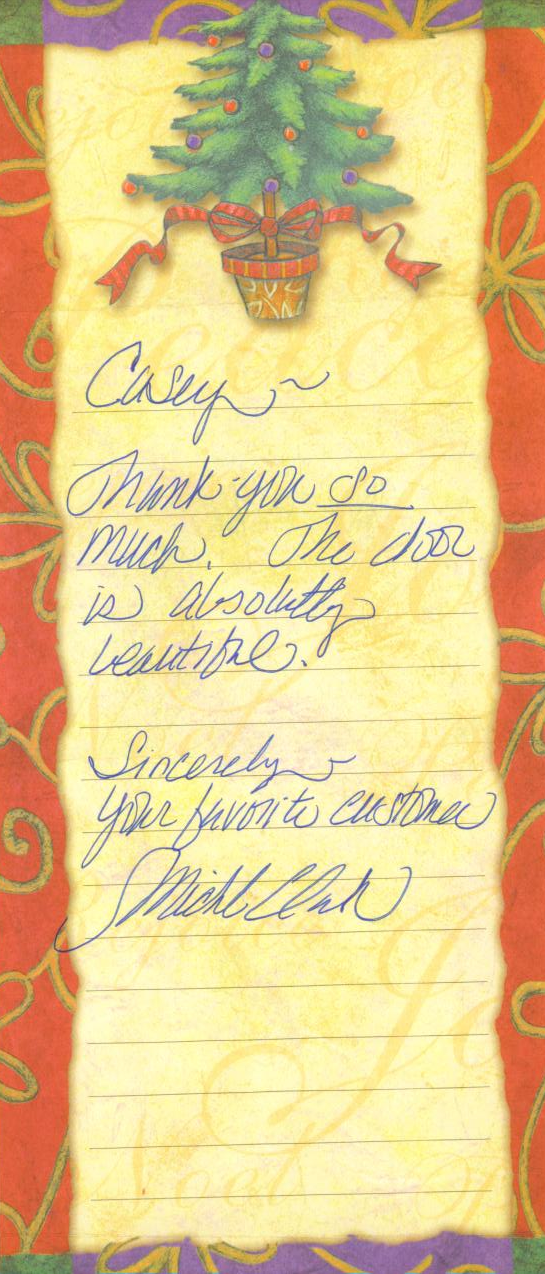 Casey ~
Thank you so
much. The door
is absolutly
beautiful.
Sincerely ~
your favorite customer